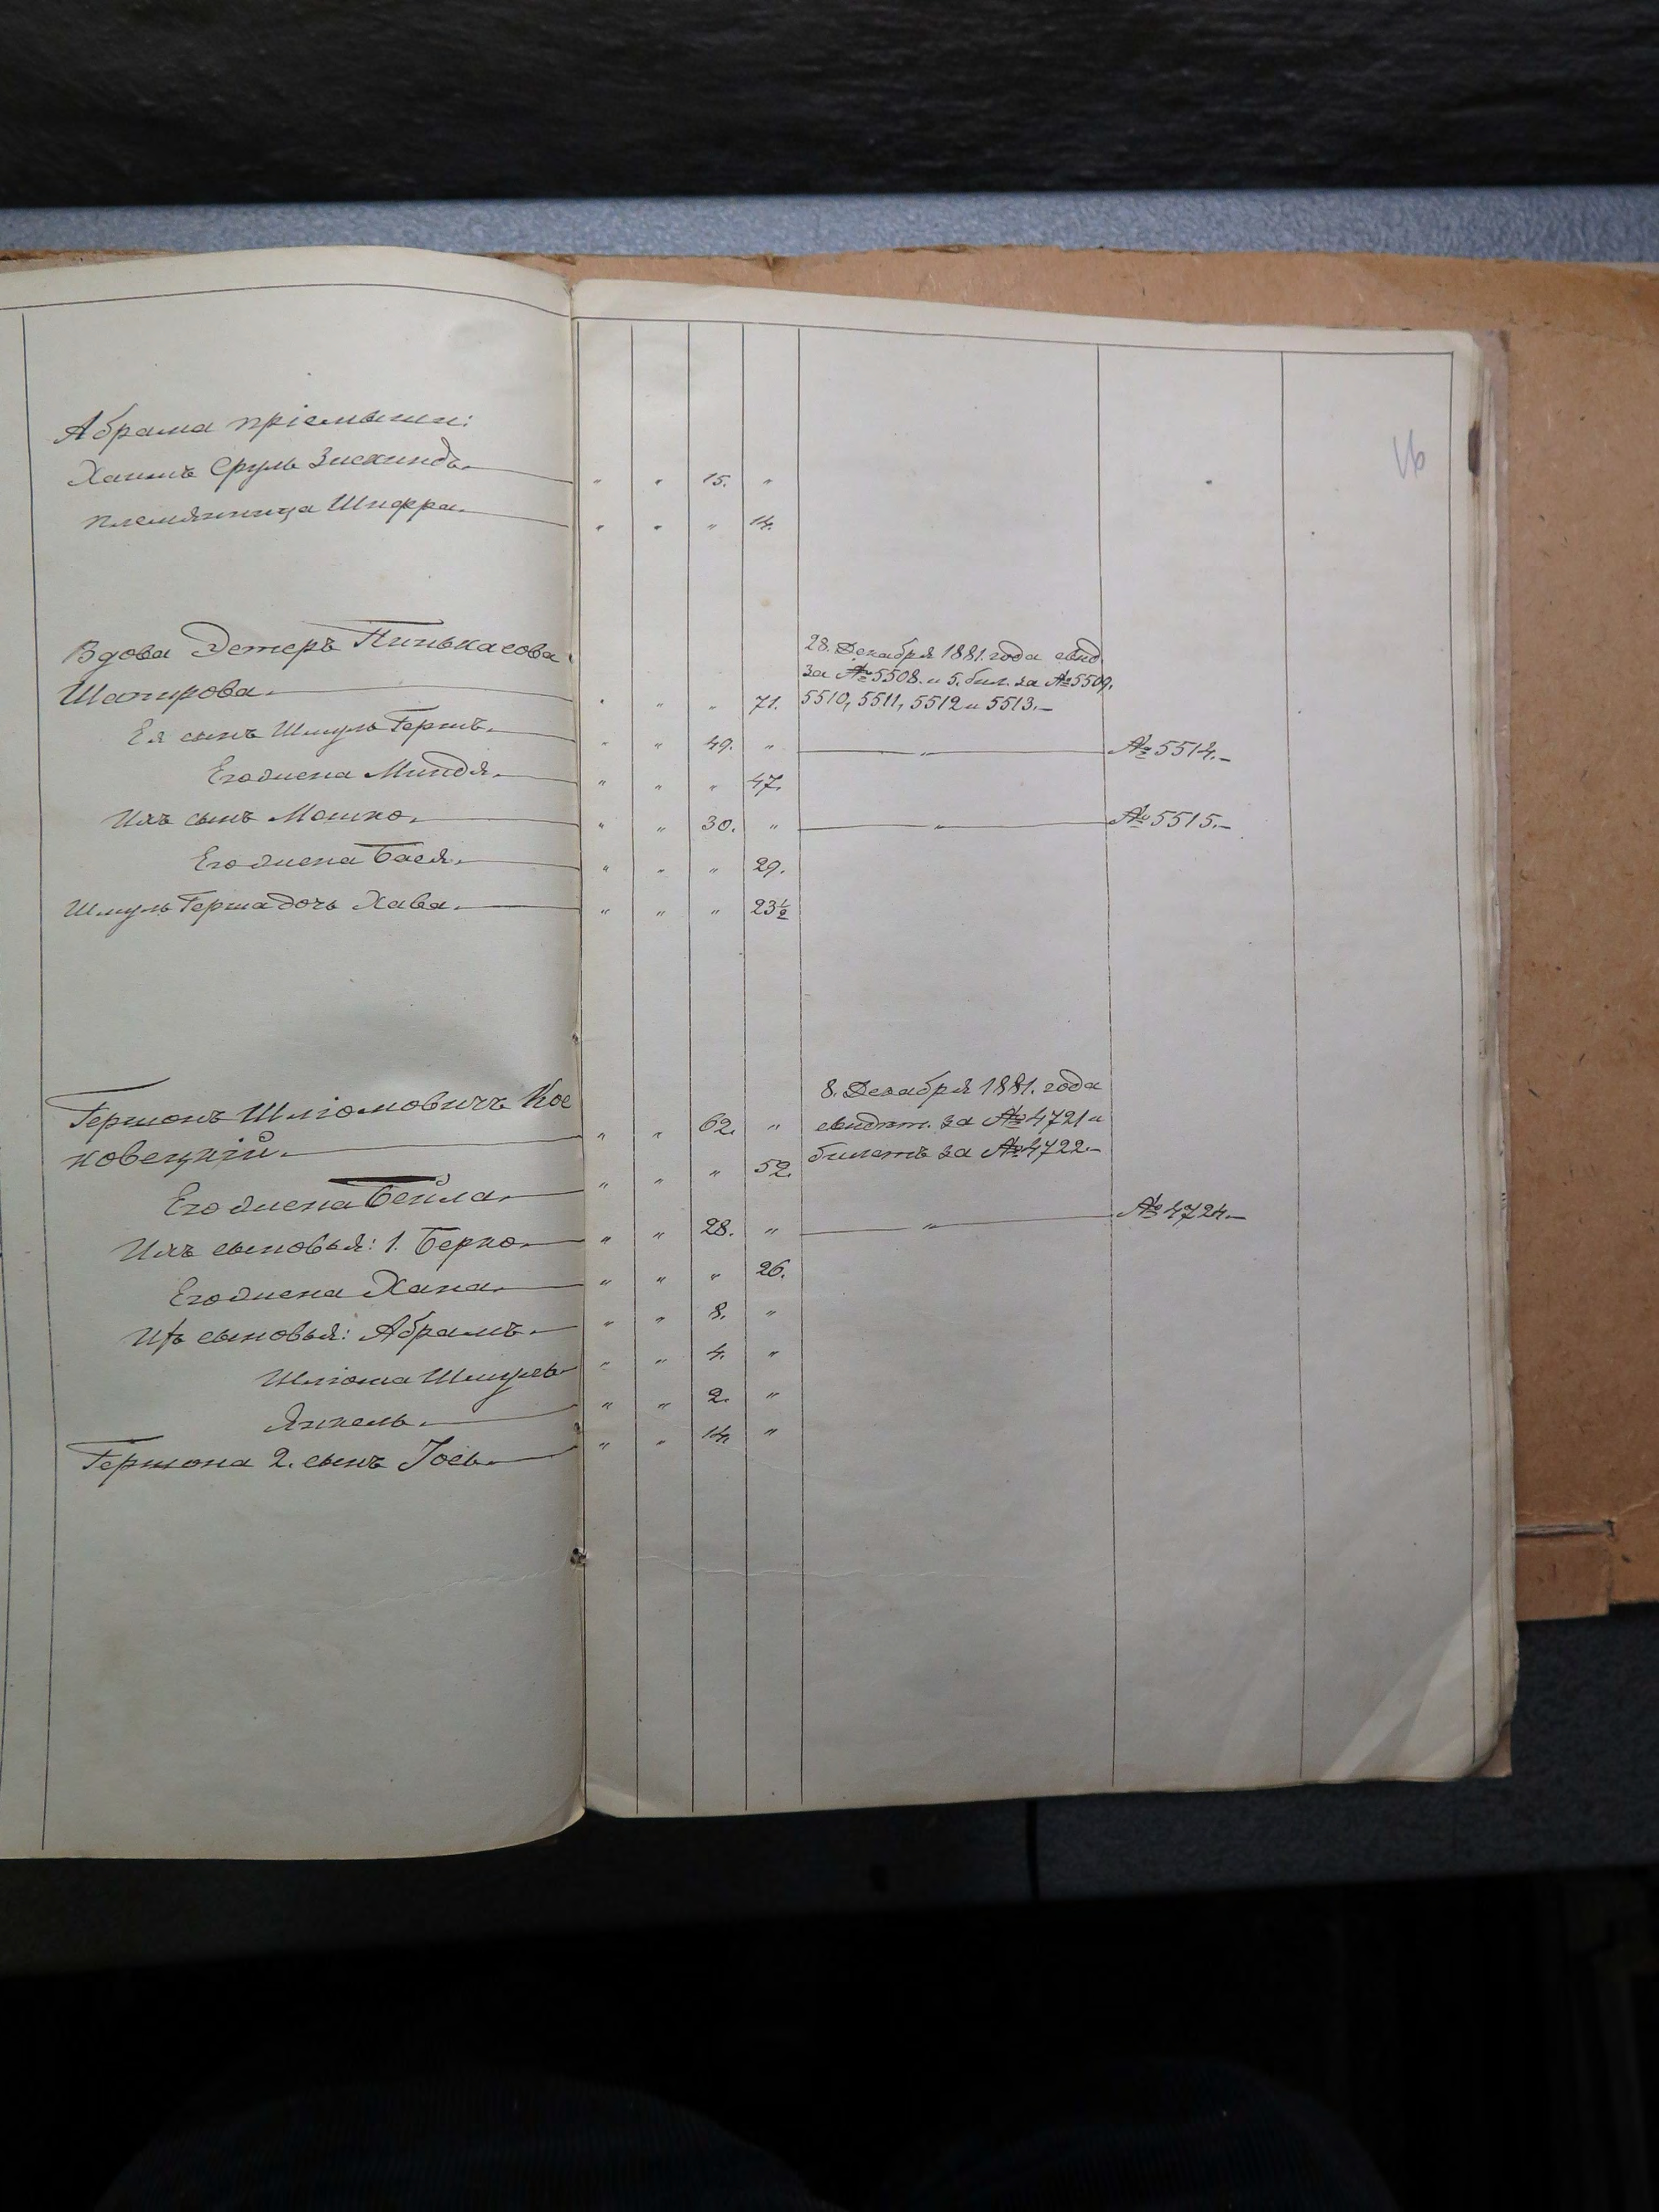 16
Абрама пріемыши:
Хаимъ Сруль Зискиндъ. " " 15. "
племянница Шифра. " " " 14.
Вдова Эстеръ Пинькасова
Шапирова. " " " 71.
28. Декабря 1881. года свид.
за № 5508. и 5. бил. за № 5509,
5510, 5511, 5512 и 5513.
Ея сынъ Шмуль Гершъ. " " 49. " " № 5514.
Его жена Миндля. " " " 47.
Ихъ сынъ Мошко. " " 30. " " № 5515.
Его жена Бася. " " " 29.
Шмуль Герша дочь Хава. " " " 23½
Гершонъ Шліомовичъ Кос
новецкій. " " 62. "
8. Декабря 1881. года
свидѣт. за № 4721 и
билетъ за № 4722.
Его жена Бейла. " " " 52.
Ихъ сыновья: 1. Берко. " " 28. " " № 4724.
Его жена Хана. " " " 26.
Ихъ сыновья: Абрамъ. " " 8. "
Шліома Шмуль " " 4. "
Янкель. " " 2. "
Гершона 2. сынъ Іось. " " 14. "